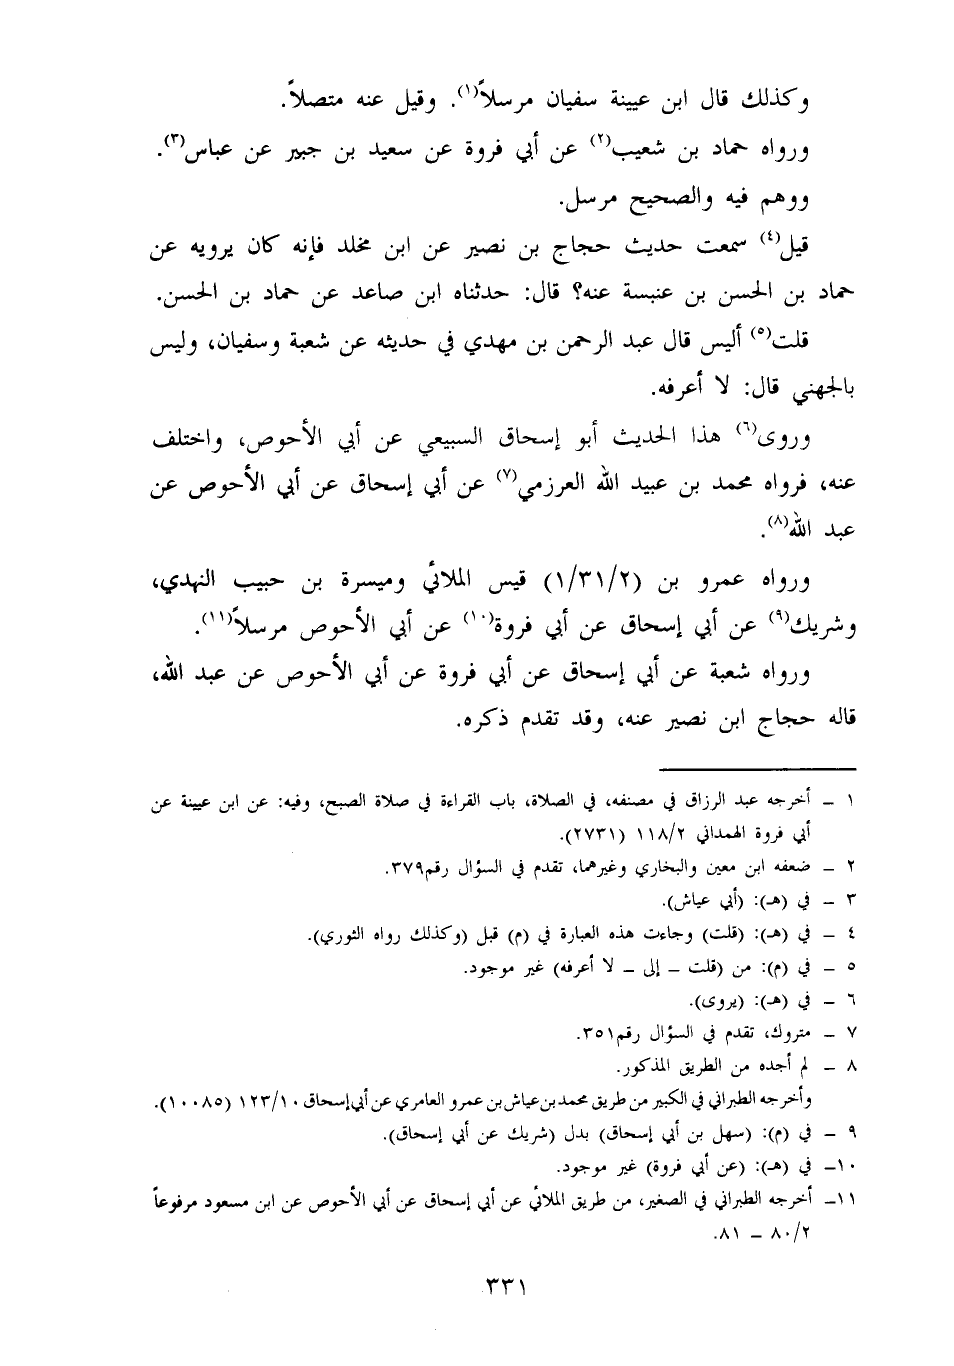 وكذلك قال ابن عيينة سفيان مرسلاً(١). وقيل عنه متصلاً.
ورواه حماد بن شعيب(٢) عن أبي فروة عن سعيد بن جبير عن عباس(٣).
ووهم فيه والصحيح مرسل.
قيل(٤) سمعت حديث حجاج بن نصير عن ابن مخلد فإنه كان يرويه عن
حماد بن الحسن بن عنبسة عنه؟ قال: حدثناه ابن صاعد عن حماد بن الحسن.
قلت(٥) أليس قال عبد الرحمن بن مهدي في حديثه عن شعبة وسفيان، وليس
بالجهني قال: لا أعرفه.
وروى(٦) هذا الحديث أبو إسحاق السبيعي عن أبي الأحوص، واختلف
عنه، فرواه محمد بن عبيد الله العرزمي(٧) عن أبي إسحاق عن أبي الأحوص عن
عبد الله(٨).
ورواه عمرو بن (١/٣١/٢) قيس الملائي وميسرة بن حبيب النهدي،
وشريك(٩) عن أبي إسحاق عن أبي فروة(١٠) عن أبي الأحوص مرسلاً(١١).
ورواه شعبة عن أبي إسحاق عن أبي فروة عن أبي الأحوص عن عبد الله،
قاله حجاج ابن نصير عنه، وقد تقدم ذكره.
١ ـ أخرجه عبد الرزاق في مصنفه، في الصلاة، باب القراءة في صلاة الصبح، وفيه: عن ابن عيينة عن
أبي فروة الهمداني ١١٨/٢ (٢٧٣١).
٢ ـ ضعفه ابن معين والبخاري وغيرهما، تقدم في السؤال رقم٣٧٩.
٣ ـ في (هـ): (أبي عياش).
٤ ـ في (هـ): (قلت) وجاءت هذه العبارة في (م) قبل (وكذلك رواه الثوري).
٥ ـ في (م): من (قلت ـ إلى ـ لا أعرفه) غير موجود.
٦ ـ في (هـ): (يروى).
٧ ـ متروك، تقدم في السؤال رقم٣٥١.
٨ ـ لم أجده من الطريق المذكور.
وأخرجه الطبراني في الكبير من طريق محمد بن عياش بن عمرو العامري عن أبي إسحاق ١٢٣/١٠ (١٠٠٨٥).
٩ ـ في (م): (سهل بن أبي إسحاق) بدل (شريك عن أبي إسحاق).
١٠ـ في (هـ): (عن أبي فروة) غير موجود.
١١ـ أخرجه الطبراني في الصغير، من طريق الملائي عن أبي إسحاق عن أبي الأحوص عن ابن مسعود مرفوعاً
٨٠/٢ ـ ٨١.
٣٣١